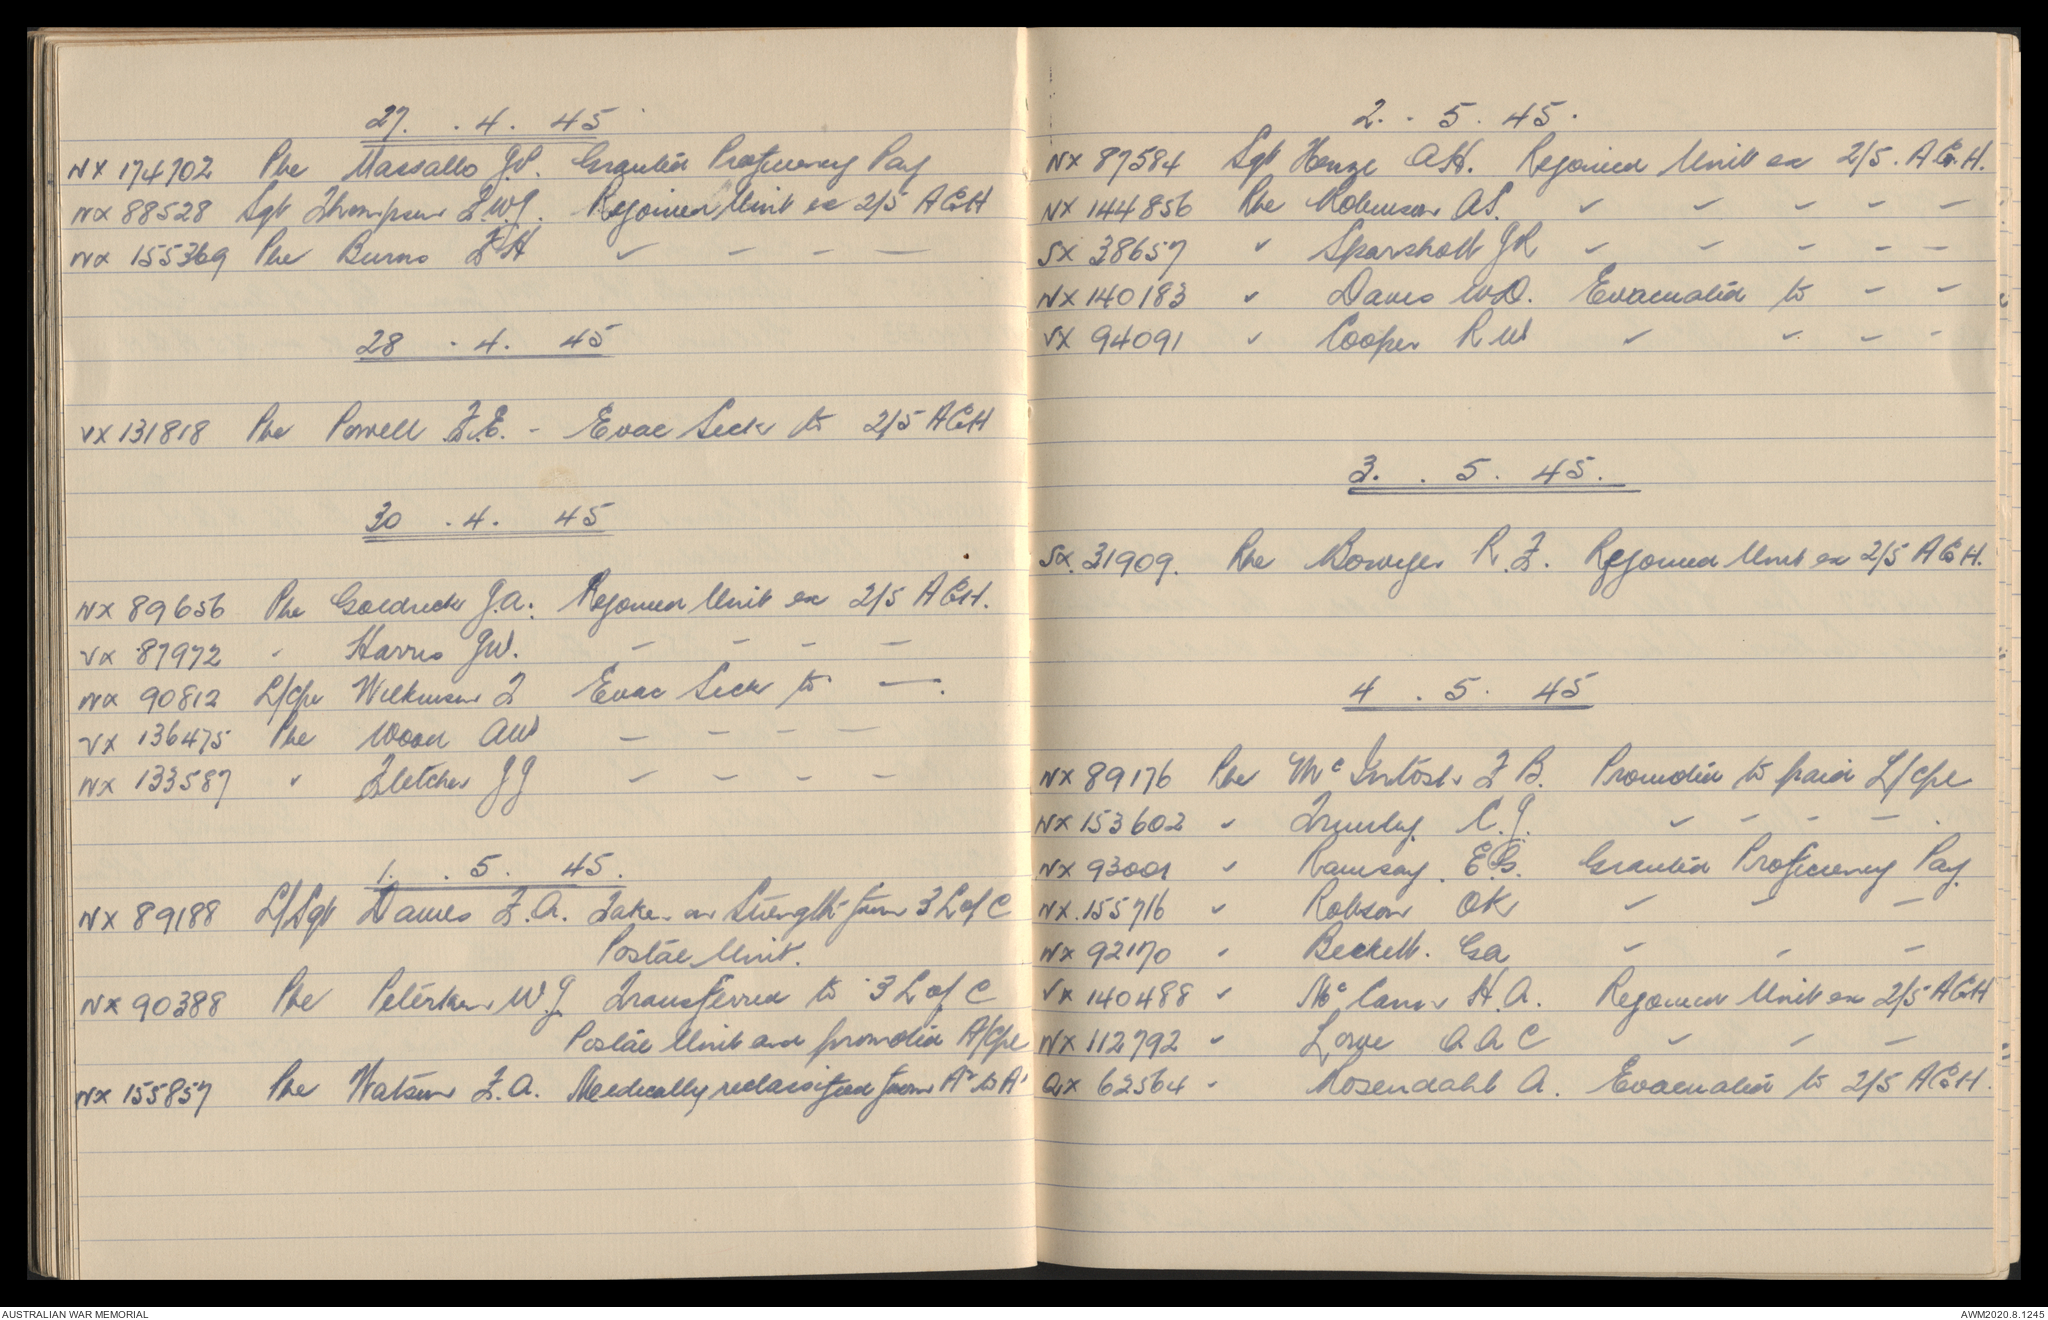 27. . 4. 45
NX 174702 Pte Massallo J.P. Granted Proficiency Pay
NX 88528 Sgt Thompson F.W.J. Rejoined Unit ex 2/5 AGH
NX 155369 Pte Burns F H " - - -
28 . 4. 45
VX 131818 Pte Powell F.E. - Evac Sick to 2/5 AGH
30 . 4. 45
NX 89656 Pte Goldrick J.A. Rejoined Unit ex 2/5 AGH.
VX 87972 " Harris J.W. - - - -
NX 90812 L/Cpl Wilkinson F Evac Sick to -.
VX 136475 Pte Wood AW - - - -
NX 133587 " Fletcher J J - - - -
1. . 5. 45.
NX 89188 L/Sgt Davies F.A. Taken on Strength from 3 L of C
Postal Unit.
NX 90388 Pte Peterken W.J. Transferred to 3 L of C
Postal Unit and promoted A/Cpl
NX 155857 Pte Watson F.A. Medically reclassified from A2 to A1
2. . 5. 45.
NX 87584 Sgt Henze A.H. Rejoined Unit ex 2/5. AGH.
NX 144856 Pte Robinson A.S. " " - - -
SX 38657 " Sparshott J R " " - - -
NX 140183 " Davis W.D. Evacuated to - -
VX 94091 " Cooper R W " " - -
3. . 5. 45.
SX. 31909. Pte Bowyer R. F. Rejoined Unit ex 2/5 AGH.
4 . 5. 45
NX 89176 Pte McIntosh F B. Promoted to paid L/Cpl
NX 153602 " C.J. " - - -.
NX 93001 " Ramsay. E.G. Granted Proficiency Pay.
NX. 155716 " Robson OK " " -
NX 92170 " Beckett. GA " " -
VX 140488 " McCann H.A. Rejoined Unit ex 2/5 AGH
NX 112792 " Lowe A A C " " -
QX 62564 " Rosendahl A. Evacuated to 2/5 AGH.
AUSTRALIAN WAR MEMORIAL
AWM2020.8.1245